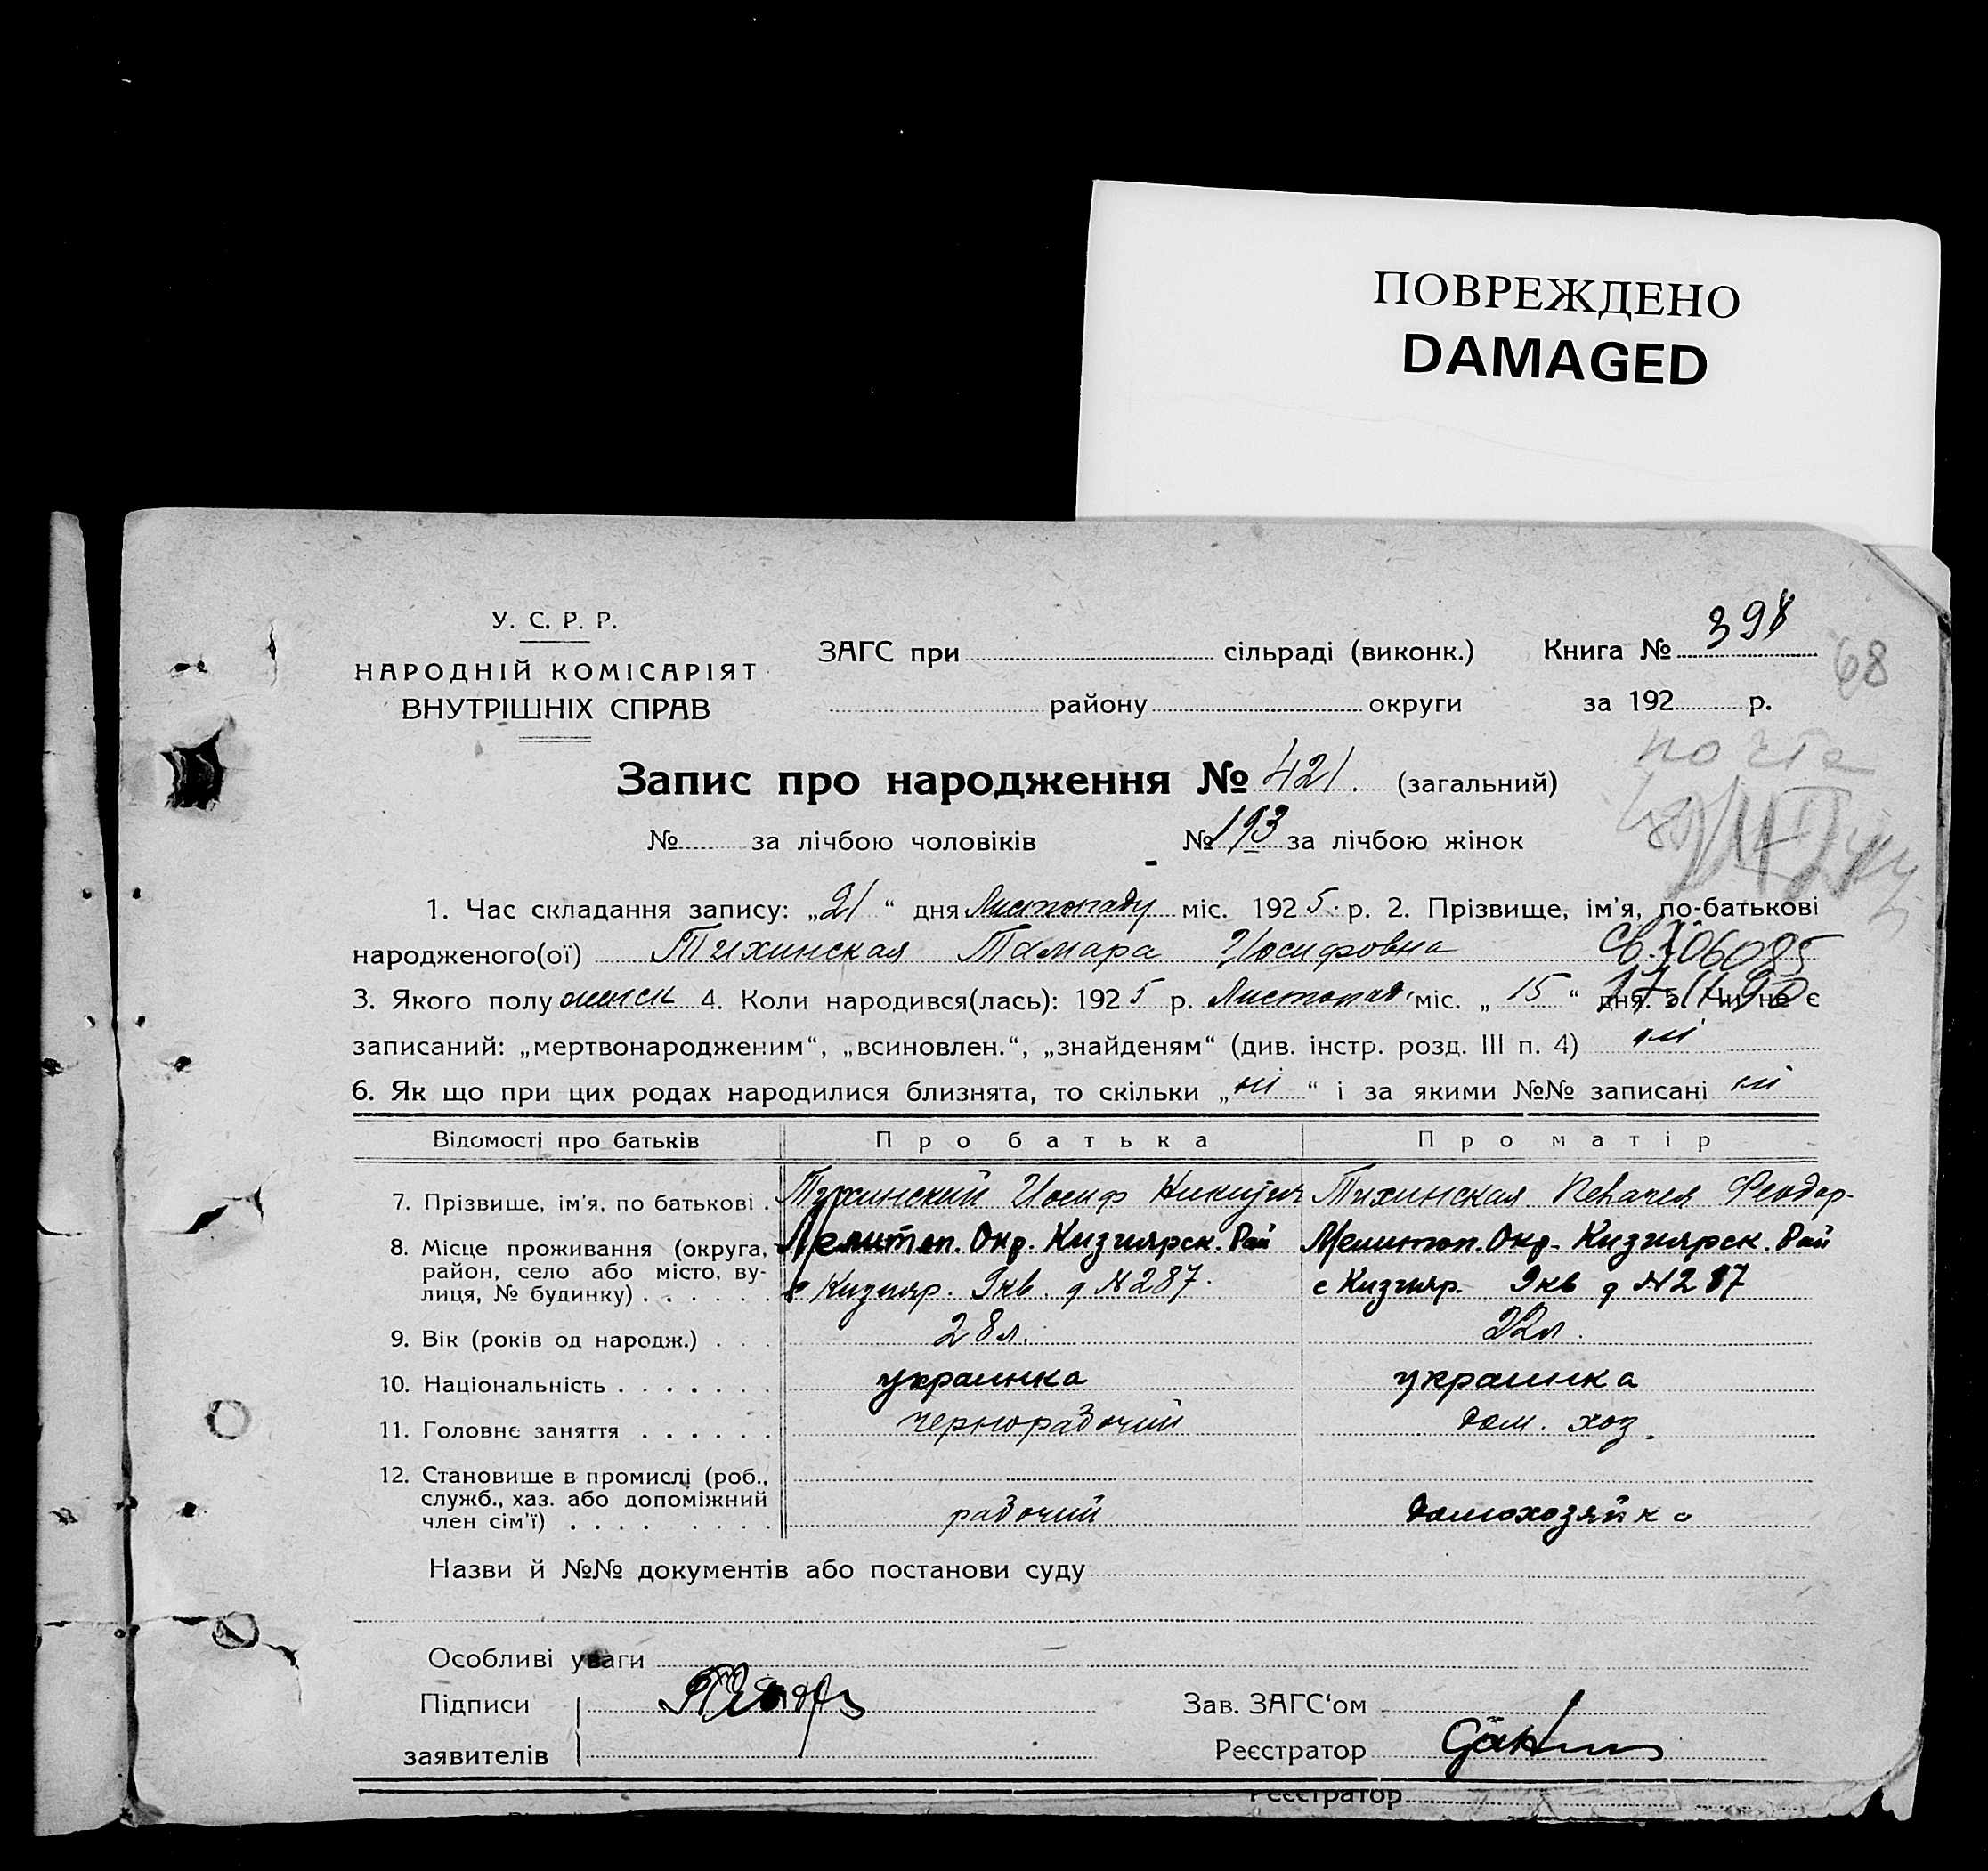 ПОВРЕЖДЕНО
DAMAGED
У. С. Р. Р.
НАРОДНІЙ КОМІСАРІЯТ
ВНУТРІШНІХ СПРАВ
ЗАГС при сільраді (виконк.)
району округи
Книга № 398
68
за 192 р.
почта
Запис про народження № 421. (загальний)
№ за лічбою чоловіків № 193 за лічбою жінок
1. Час складання запису: „21“ дня Листопаду міс. 1925. р. 2. Прізвище, ім'я, по-батькові
народженого(ої) Тихинская Тамара Иосифовна
3. Якого полу женск 4. Коли народився(лась): 1925 р. Листопад. міс. „15“ дня. 5. Чи не є
записаний: „мертвонародженим“, „всиновлен.“, „знайденям“ (див. інстр. розд. III п. 4) ні
6. Як що при цих родах народилися близнята, то скільки „ні“ і за якими №№ записані ні
Відомості про батьків Про батька Про матір
7. Прізвище, ім'я, по батькові . Тихинский Иосиф Никитич Тихинская Пелагея Феодор-
8. Місце проживання (округа, район, село або місто, вулиця, № будинку) . . . . . . Мелитоп. Окр. Кизиярск. Рай Мелитоп. Окр. Кизиярск. Рай
с Кизияр. 9кв. д №287. с Кизияр. 9кв д №287
9. Вік (років од народж.) . . . 28л. 22л.
10. Національність . . . . . . . украинка украинка
11. Головнє заняття . . . . . . чернорабочий дом. хоз.
12. Становище в промислі (роб., служб., хаз. або допоміжний член сім'ї) . . . . . . . . рабочий домохозяйка
Назви й №№ документів або постанови суду
Особливі уваги
Підписи
заявителів
Зав. ЗАГС'ом
Реєстратор
Реєстратор